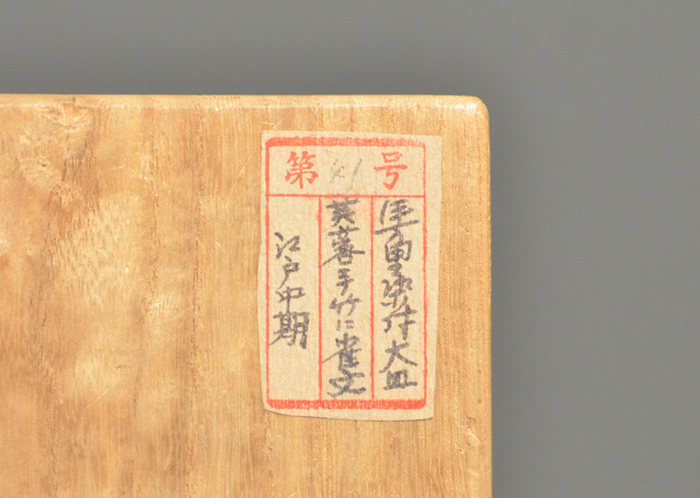 第41号
伊万里染付大皿
芙蓉手竹に雀文
江戸中期